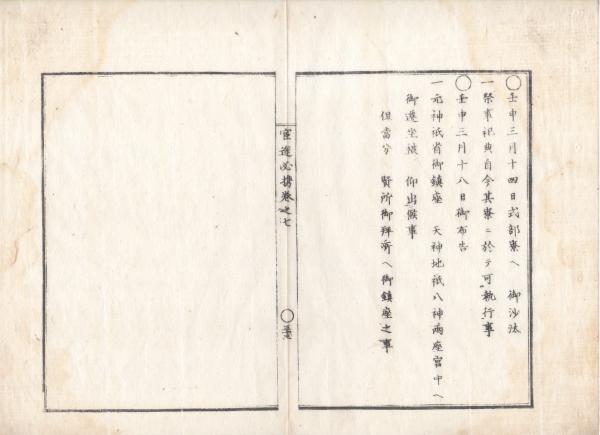 ○壬申三月十四日式部寮ヘ 御沙汰
一祭事祀典自今其寮ニ於テ可執行事
○壬申三月十八日御布告
一元神祇省御鎮座 天神地祇八神両座宮中ヘ
御遷坐被 仰出候事
但當分 賢所御拜所ヘ御鎮座之事
官途必携巻之七
○